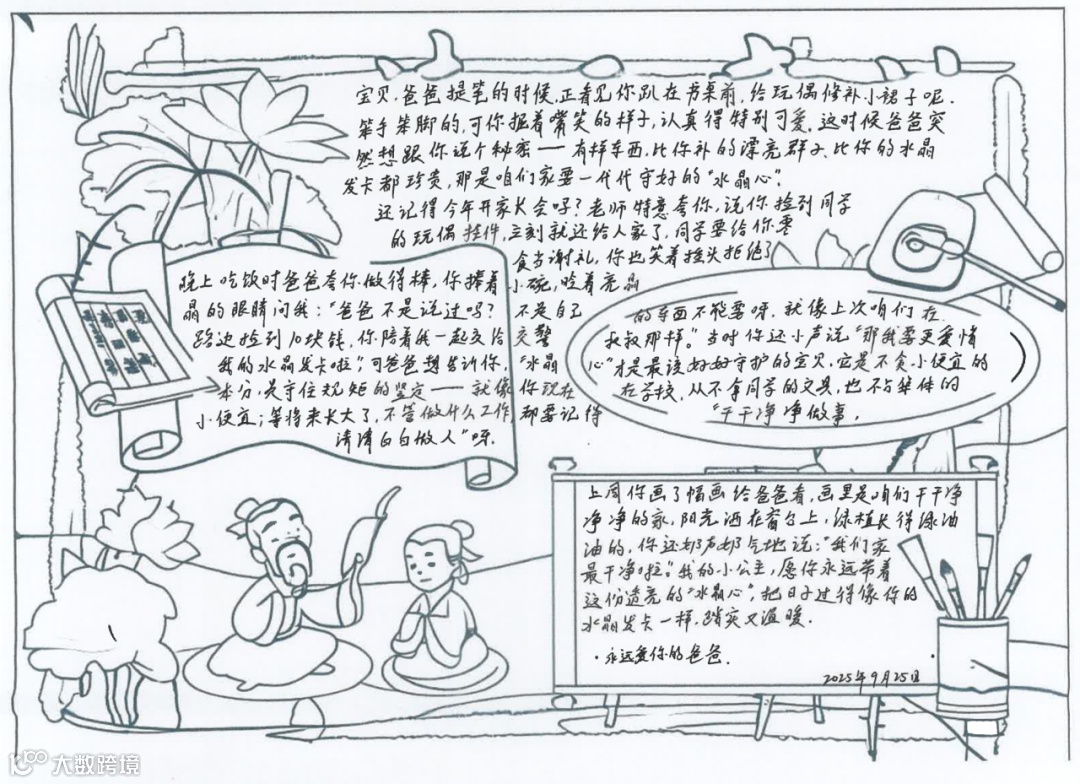 宝贝,爸爸提笔的时候,正看见你趴在书桌前,给玩偶修补小裙子呢.
笨手笨脚的,可你抿着嘴笑的样子,认真得特别可爱.这时候爸爸突
然想跟你说个秘密——有样东西,比你补的漂亮群子、比你的水晶
发卡都珍贵,那是咱们家要一代代守好的"水晶心".
还记得今年开家长会吗?老师特意夸你,说你捡到同学
的玩偶挂件,立刻就还给人家了,同学要给你零
食当谢礼,你也笑着摇头拒绝了
晚上吃饭时爸爸夸你做得棒,你捧着小碗,眨着亮晶
晶的眼睛问我:"爸爸不是说过吗?不是自己的东西不能要呀.就像上次咱们在
路边捡到10块钱,你陪着我一起交给交警叔叔那样".当时你还小声说"那我要更爱惜
我的水晶发卡啦";可爸爸想告诉你,"水晶心"才是最该好好守护的宝贝,它是不贪小便宜的
本分,是守住规矩的坚定——就像你现在在学校,从不拿同学的文具,也不占集体的
小便宜;等将来长大了,不管做什么工作,都要记得"干干净净做事,
清清白白做人"呀.
上周你画了幅画给爸爸看,画里是咱们干干净
净净的家,阳光洒在窗台上,绿植长得绿油
油的,你还奶声奶气地说:"我们家
最干净啦".我的小公主,愿你永远带着
这份透亮的"水晶心",把日子过得像你的
水晶发卡一样,踏实又温暖.
·永远爱你的爸爸.
2025年9月25日
大数跨境